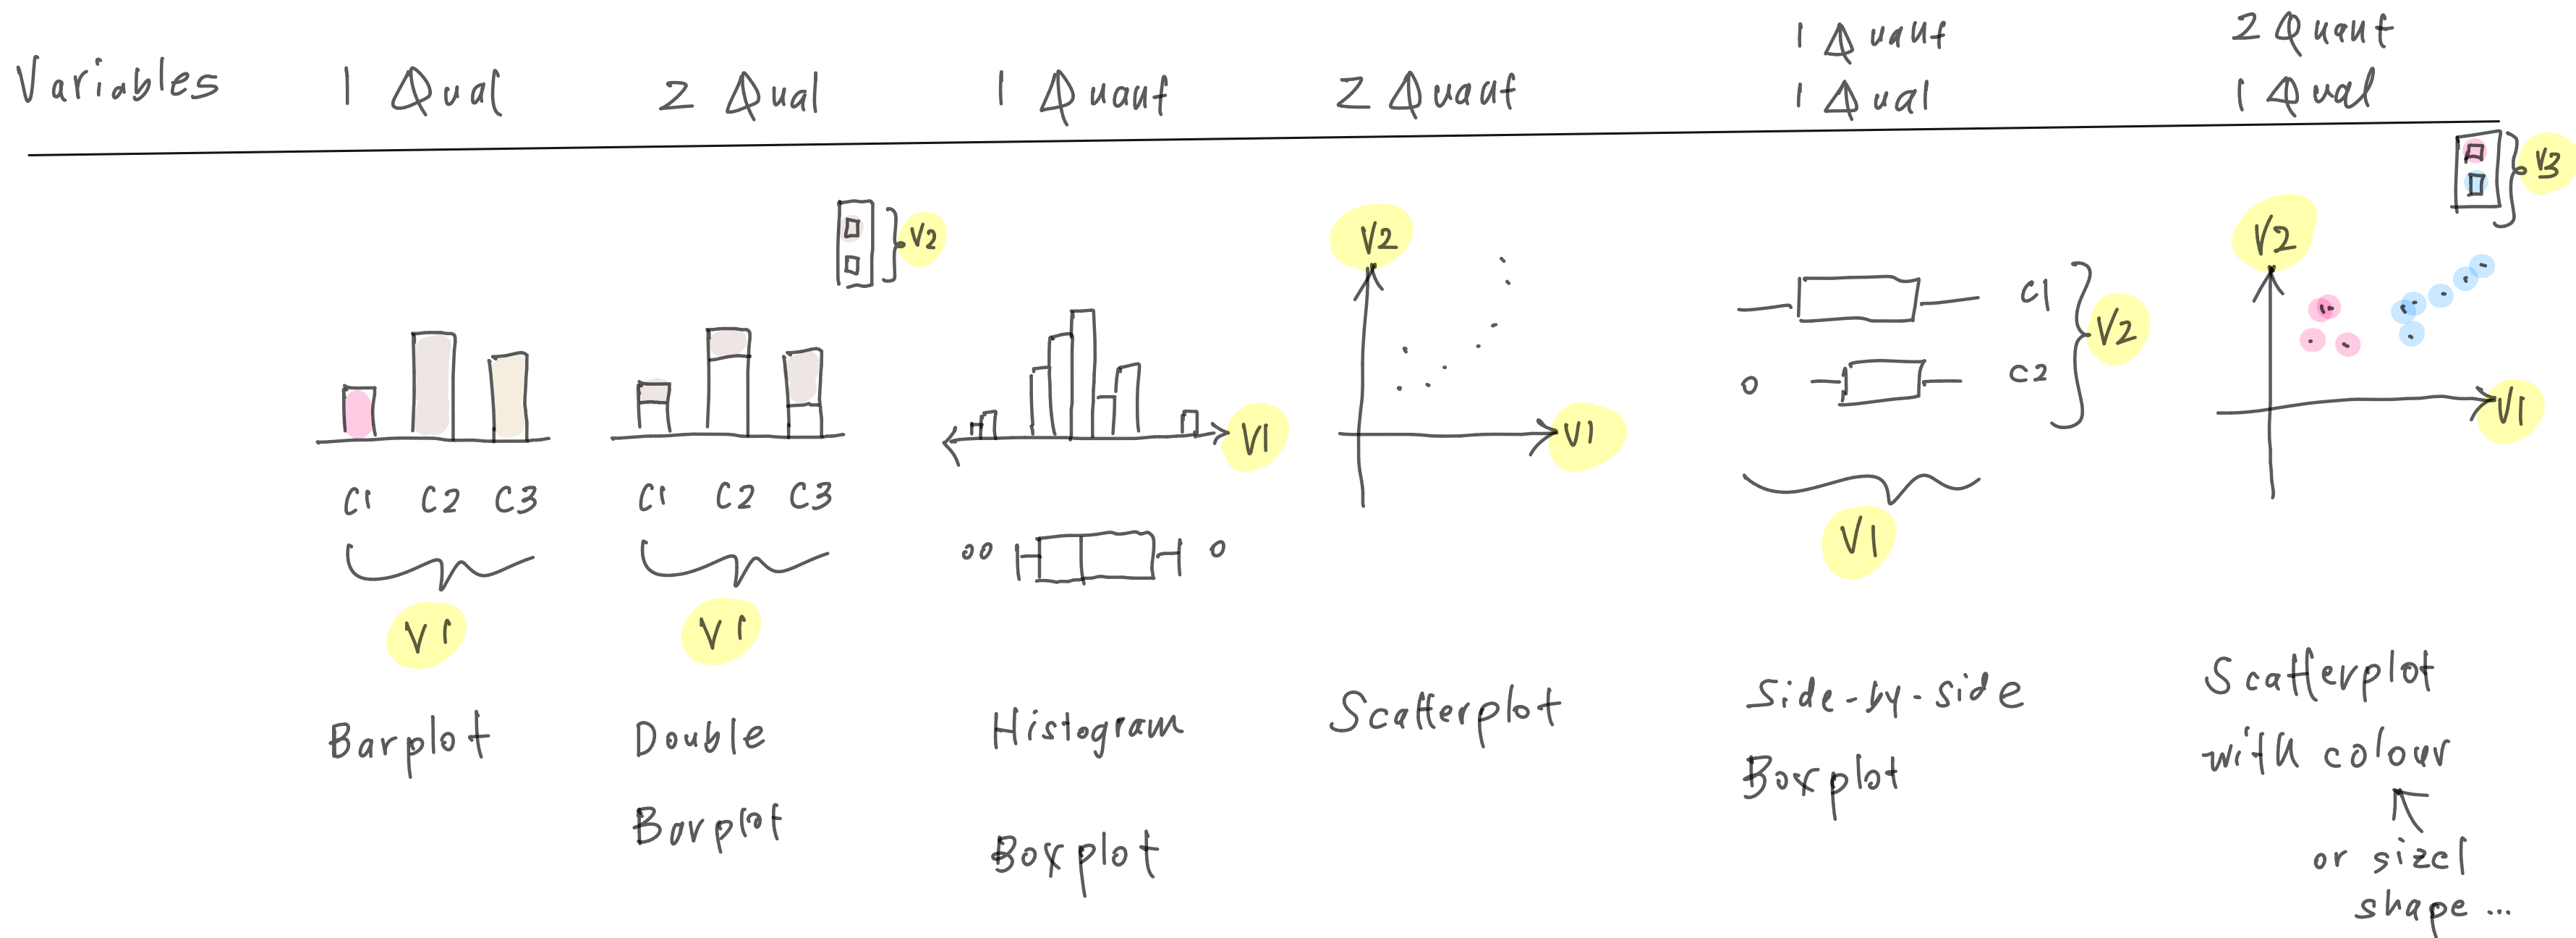 Variables
1 Qual
2 Qual
1 Quant
2 Quant
1 Quant
1 Qual
2 Quant
1 Qual
C1 C2 C3
V1
Barplot
V2
C1 C2 C3
V1
Double
Barplot
V1
Histogram
Boxplot
V2
V1
Scatterplot
C1
C2
V2
V1
Side-by-side
Boxplot
V3
V2
V1
Scatterplot
with colour
or size/
shape ...